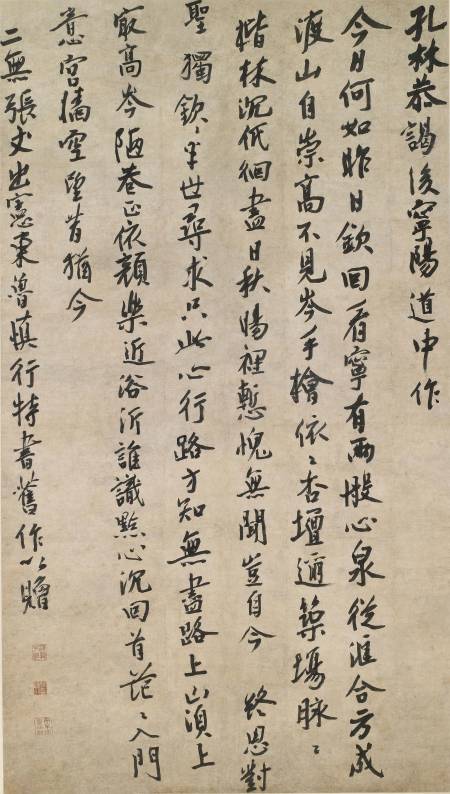 孔林恭謁後寧陽道中作
今日何如昨日欽回看寧有兩般心泉從滙合方成
渡山自崇高不見岑手檜依〻杏壇邇築場脉〻
楷林沉低徊盡日秋陽裡慙愧無聞豈自今 終思對
聖獨欽〻半世尋求只此心行路方知無盡路上山須上
㝡高岑陋巷正依顏樂近浴沂誰識點心沉回首茫〻入門
意宮牆空望昔猶今
二無張丈出憲東魯慎行特書舊作以贈